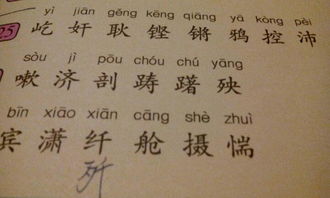 yì jiān gěng kēng qiāng yā kòng pèi
25 屹 奸 耿 铿 锵 鸦 控 沛
sòu jì pōu chóu chú yāng
嗽 济 剖 踌 躇 殃
bīn xiāo xiān cāng shè zhuì
宾 潇 纤 舱 摄 惴